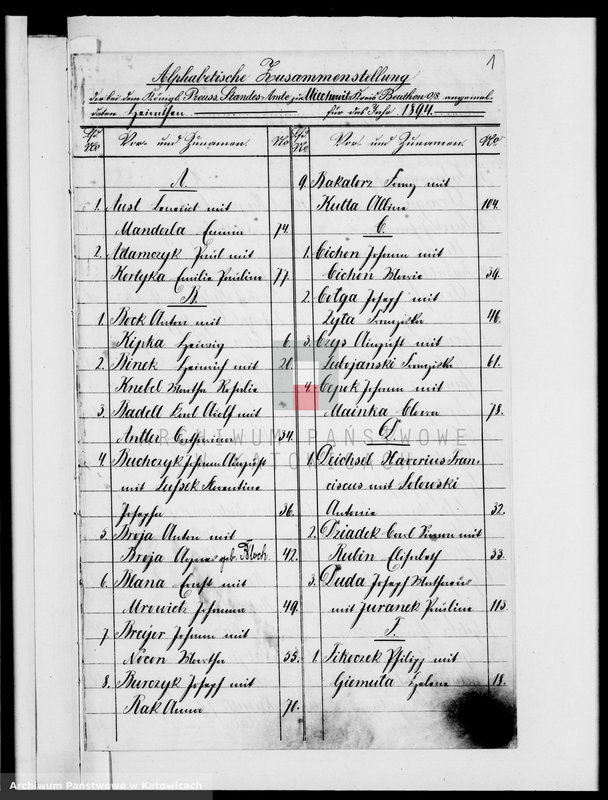 1
Alphabetische Zusammenstellung
der bei dem Königl. Preuss. Standes-Amte zu Miechowitz Kreis Beuthen O/S. angemel-
deten Heirathen für das Jahr 1894.
Lfd No Vor- und Zunamen. No
A.
1. Aust Benedict mit
Manderla 74.
2. Adamczyk Paul mit
Kortyka Emilie Pauline 77.
B.
1. Bock Anton mit
Kipka Hedwig 6.
2. Binek Heinrich mit 20.
Knebel Martha Rosalie
3. Badelt Karl Adolf mit
Antler Catharina 34.
4. Buchczyk Johann August
mit Lussek Florentine
Josefa 36.
5. Broja Anton mit
Broja Agnes geb. Bloch 42.
6. Blana Ernst mit
Mrowietz Johanna 49.
7. Breijer Johann mit
Nocon Martha 55.
8. Burczyk Josef mit
Rak Anna 70.
Lfd No Vor- und Zunamen. No
9. Bakalorz Franz mit
Kutta Albine 104.
C.
1. Cichon Johann mit
Cichon Marie 39.
2. Colga Josef mit
Zyta Franziska 46.
3. Czys August mit
Ledojanski Franziska 61.
4. Cepok Johann mit
Mainka Clara 78.
D.
1. Deichsel Xaverius Fran-
ciscus mit Solowski
Antonie 32.
2. Dziadek Carl Simon mit
Rulin Elisabeth 33.
3. Duda Josef Mathäus
mit Juranek Pauline 113.
F.
1. Fikoczek Philipp mit
Giemula Helene 18.
ARCHIWUM PAŃSTWOWE
W KATOWICACH
Archiwum Państwowe w Katowicach